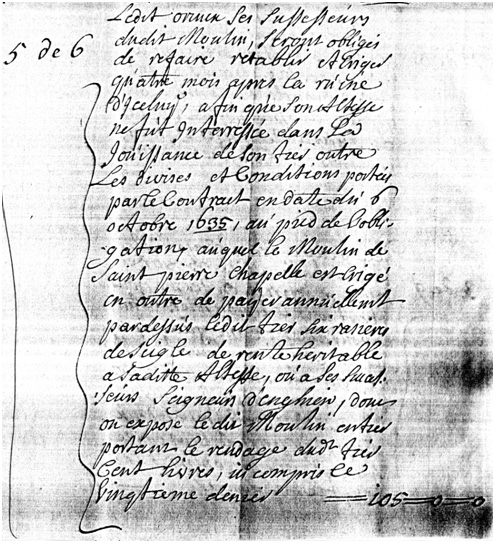 Ledit ou ses Sussesseurs
5 de 6
dudit Moulin, Seront obligés
de refaire retablir et Eriger
quatre mois apres la ruine
d'Iceluy, afin que Son Altesse
ne fut Interressée dans La
Jouissance de Son tier outre
Les devises et Conditions portées
par le Contract en date du 6
octobre 1635, au pied de l'obli-
gation, auquel le Moulin de
Saint pierre Chapelle est Erigé
en outre de payer annuellemt
par dessus ledit tier Six rasieres
de Seigle de rente heritable
a Saditte Altesse, ou a Ses Succes-
seurs Seigneur d'enghien, donc
on expose ledit Moulin en tier
portant le rendage dudt tier
Cent livres, ici compris Le
Vingtieme denier ══105—0—0